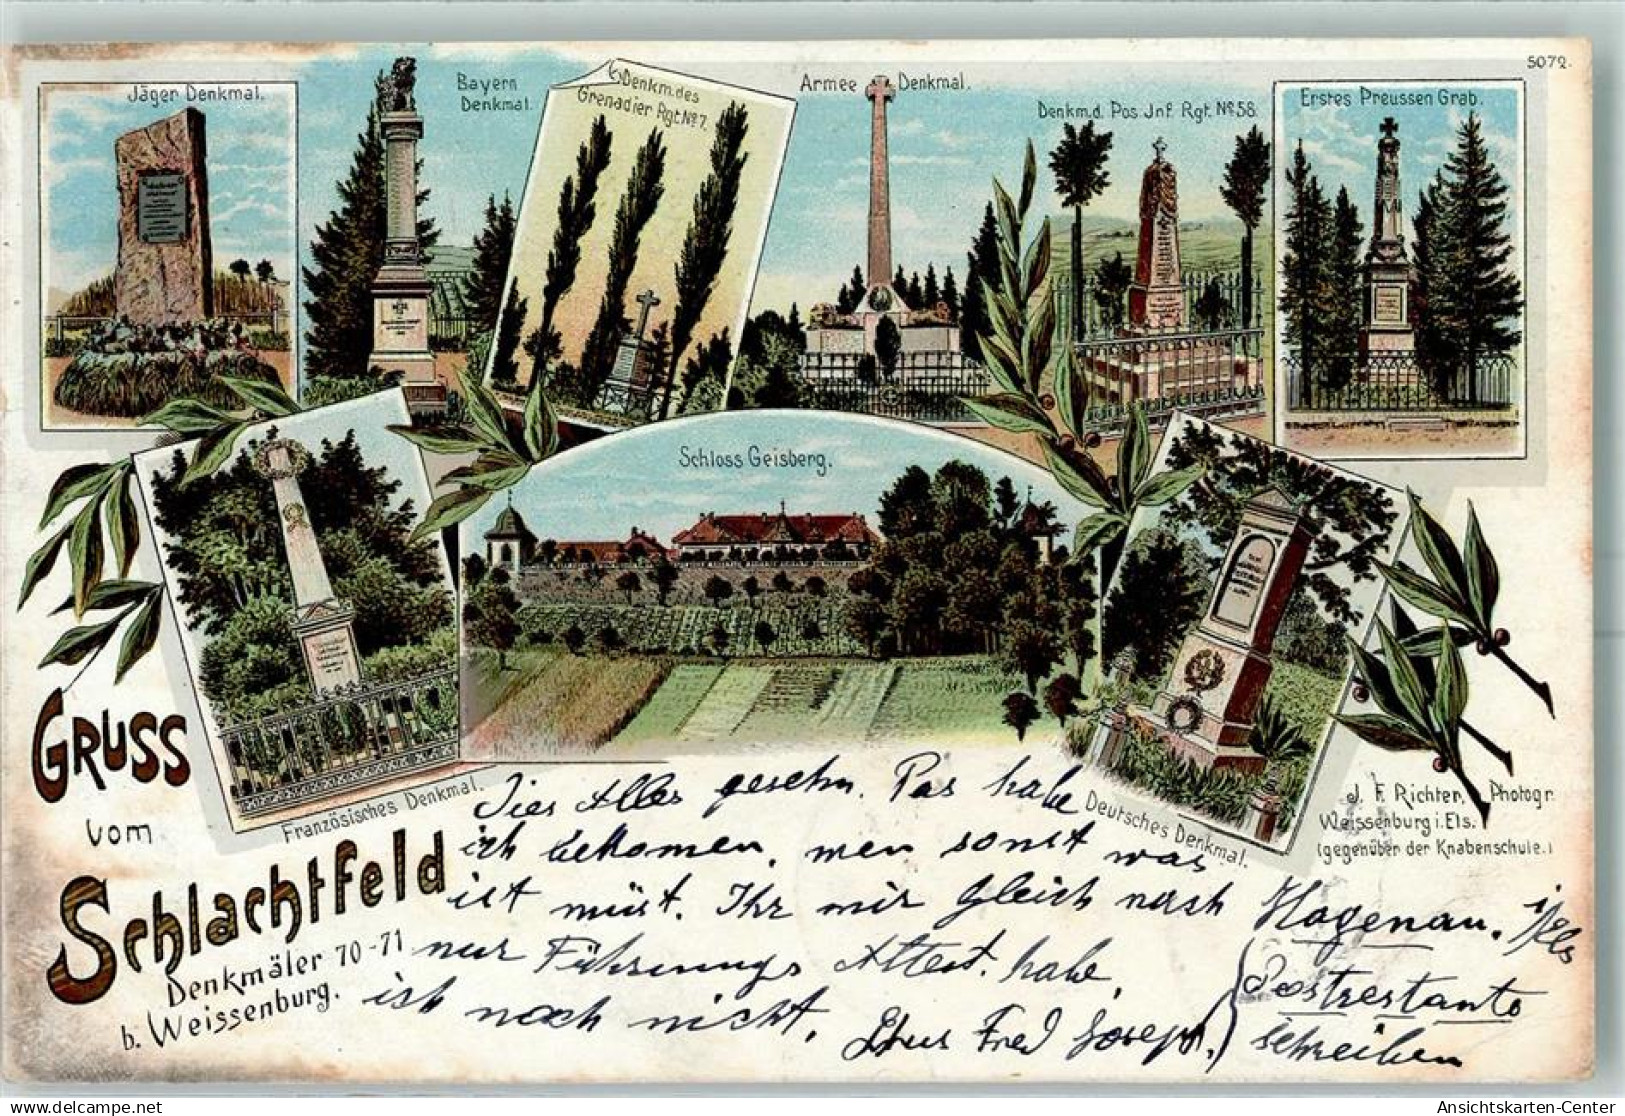 5072.
Jäger Denkmal.
Bayern
Denkmal.
Denkm. des
Grenadier Rgt. No 7.
Armee Denkmal.
Denkm. d. Pos. Jnf. Rgt. No 58.
Erstes Preussen Grab.
Schloss Geisberg.
Französisches Denkmal.
Deutsches Denkmal.
J. F. Richter, Photogr.
Weissenburg i. Els.
(gegenüber der Knabenschule.)
Gruss
vom
Schlachtfeld
Denkmäler 70-71
b. Weissenburg.
Dies Alles gesehn. Pas habe
ich bekomen, men sonst was
ist müst. Ihr mir gleich nach Hagenau. i/Els
nur Führungs Attest. habe, Postrestante
ist noch nicht, Fred Josep. schreiben
Ansichtskarten-Center